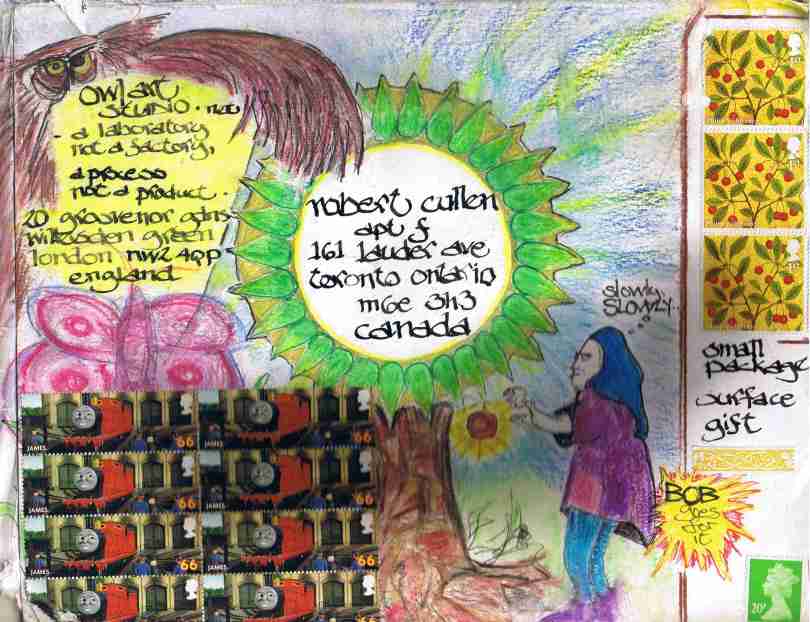 owlart
studio. not
a laboratory
not a factory,
a process
not a product.
20 grosvenor gdns
willesden green
london nw2 4qp
england
robert cullen
apt f
161 lauder ave
toronto ontario
m6e 3h3
canada
slowly,
slowly...
small
package
surface
gift
BOB
goes
for
it
JAMES 66
JAMES 66
JAMES 66
JAMES 66
JAMES 66
JAMES 66
JAMES
20P